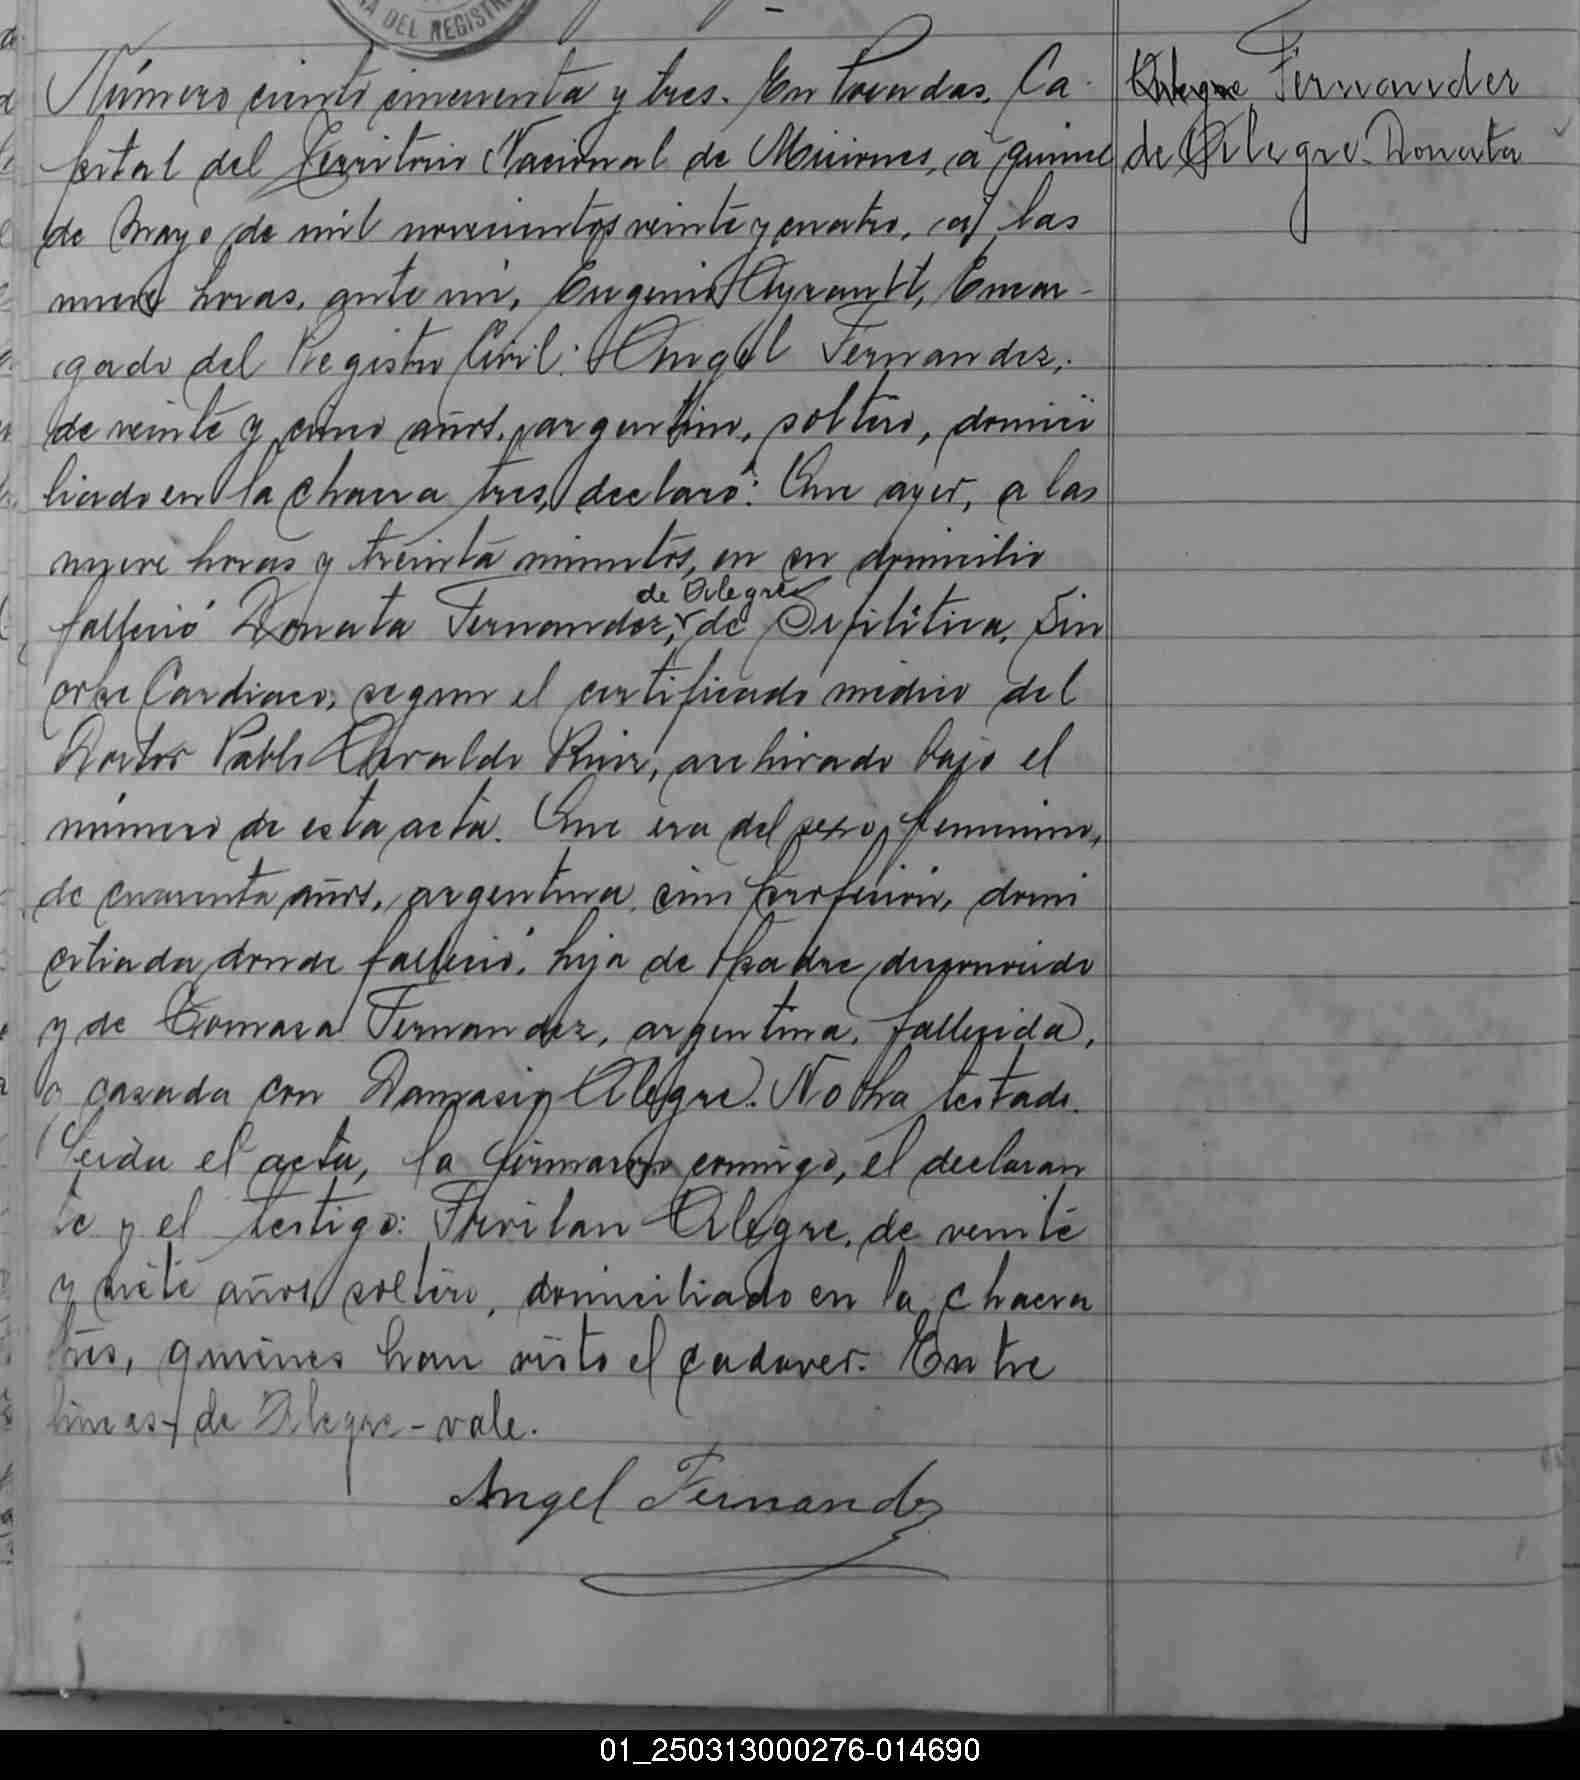 NA DEL REGISTRO
Número ciento cincuenta y tres. En Posadas, Ca-
pital del Territorio Nacional de Misiones, a quince
de Mayo de mil novecientos veinte y cuatro, a las
nueve horas, ante mi, Eugenio Ayrault, Encar-
gado del Registro Civil: Angel Fernandez,
de veinte y cinco años, argentino, soltero, domici
liado en la chacra tres, declaró: Que ayer, a las
nueve horas y treinta minutos, en su domicilio
de Alegre
falleció Donata Fernandez, de Sifilítica, Sin
cope Cardiaco, segun el certificado médico del
Doctor Pablo Ruiz, archivado bajo el
número de esta acta. Que era del sexo femenino,
de cuarenta años, argentina, sin profesion, domi
ciliada donde falleció, hija de padre desconocido
y de Tomasa Fernandez, argentina, fallecida,
y casada con Damasio Alegre. No ha testado.
Leida el acta, la firmaron conmigo, el declaran
te y el testigo: Froilan Alegre, de veinte
y siete años, soltero, domiciliado en la chacra
tres, quienes han visto el cadaver. Entre
lineas - de Alegre - vale.
Angel Fernandez
Alegre Fernandez
de Alegre Donata
01_250313000276-014690